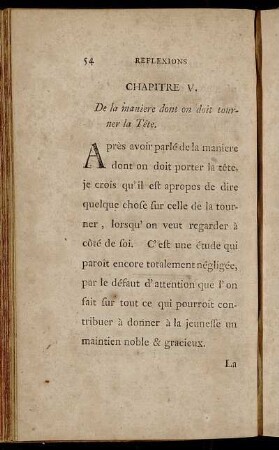 54 REFLEXIONS
CHAPITRE V.
De la maniere dont on doit tour-
ner la Tête.
Après avoir parlé de la maniere
dont on doit porter la tête,
je crois qu'il est apropos de dire
quelque chose sur celle de la tour-
ner, lorsqu'on veut regarder à
côté de soi. C'est une étude qui
paroit encore totalement négligée,
par le défaut d'attention que l'on
fait sur tout ce qui pourroit con-
tribuer à donner à la jeunesse un
maintien noble & gracieux.
La